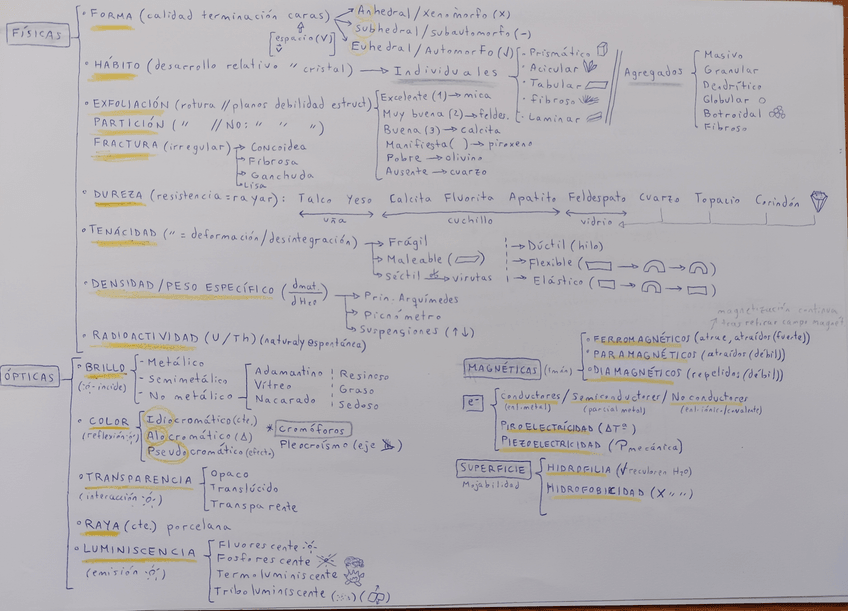 FÍSICAS
• FORMA (calidad terminación caras)
[espacio (V)]
Anhedral / Xenomorfo (X)
Subhedral / Subautomorfo (-)
Euhedral / Automorfo (√)
• HÁBITO (desarrollo relativo " cristal) → Individuales
- Prismático
- Acicular
- Tabular
- fibroso
- Laminar
Agregados
Masivo
Granular
Dendrítico
Globular
Botroidal
Fibroso
• EXFOLIACIÓN (rotura // planos debilidad estruct)
Excelente (1) → mica
Muy buena (2) → feldes.
Buena (3) → calcita
Manifiesta ( ) → piroxeno
Pobre → olivino
Ausente → cuarzo
PARTICIÓN (" // NO: " " ")
FRACTURA (irregular) → Concoidea
→ Fibrosa
→ Ganchuda
→ Lisa
• DUREZA (resistencia = rayar): Talco Yeso Calcita Fluorita Apatito Feldespato Cuarzo Topacio Corindón
uña cuchillo vidrio
• TENACIDAD (" = deformación/desintegración)
→ Frágil
→ Maleable
→ Séctil → virutas
→ Dúctil (hilo)
→ Flexible
→ Elástico
• DENSIDAD / PESO ESPECÍFICO (dmat. / dH₂O)
→ Prin. Arquímedes
→ Picnómetro
→ Suspensiones (↑↓)
• RADIOACTIVIDAD (U/Th) (natural y espontánea)
ÓPTICAS
• BRILLO
(incide)
- Metálico
- Semimetálico
- No metálico
Adamantino
Vítreo
Nacarado
Resinoso
Graso
Sedoso
• COLOR
(reflexión)
Idiocromático (cte.)
Alocromático (Δ)
Pseudocromático (efecto)
* Cromóforos
Pleocroísmo (eje)
• TRANSPARENCIA
(interacción)
Opaco
Translúcido
Transparente
• RAYA (cte.) porcelana
• LUMINISCENCIA
(emisión)
Fluorescente
Fosforescente
Termoluminiscente
Triboluminiscente
magnetización continua
↑ tras retirar campo magnet.
MAGNÉTICAS (imán)
• FERROMAGNÉTICOS (atrae, atraídos (fuerte))
• PARAMAGNÉTICOS (atraídos (débil))
• DIAMAGNÉTICOS (repelidos (débil))
e⁻
Conductores / Semiconductores / No conductores
(enl. metal) (parcial metal) (enl. iónic./covalente)
PIROELECTRICIDAD (ΔTª)
PIEZOELECTRICIDAD (P mecánica)
SUPERFICIE
Mojabilidad
HIDROFILIA (√ recubren H₂O)
HIDROFOBICIDAD (X " ")